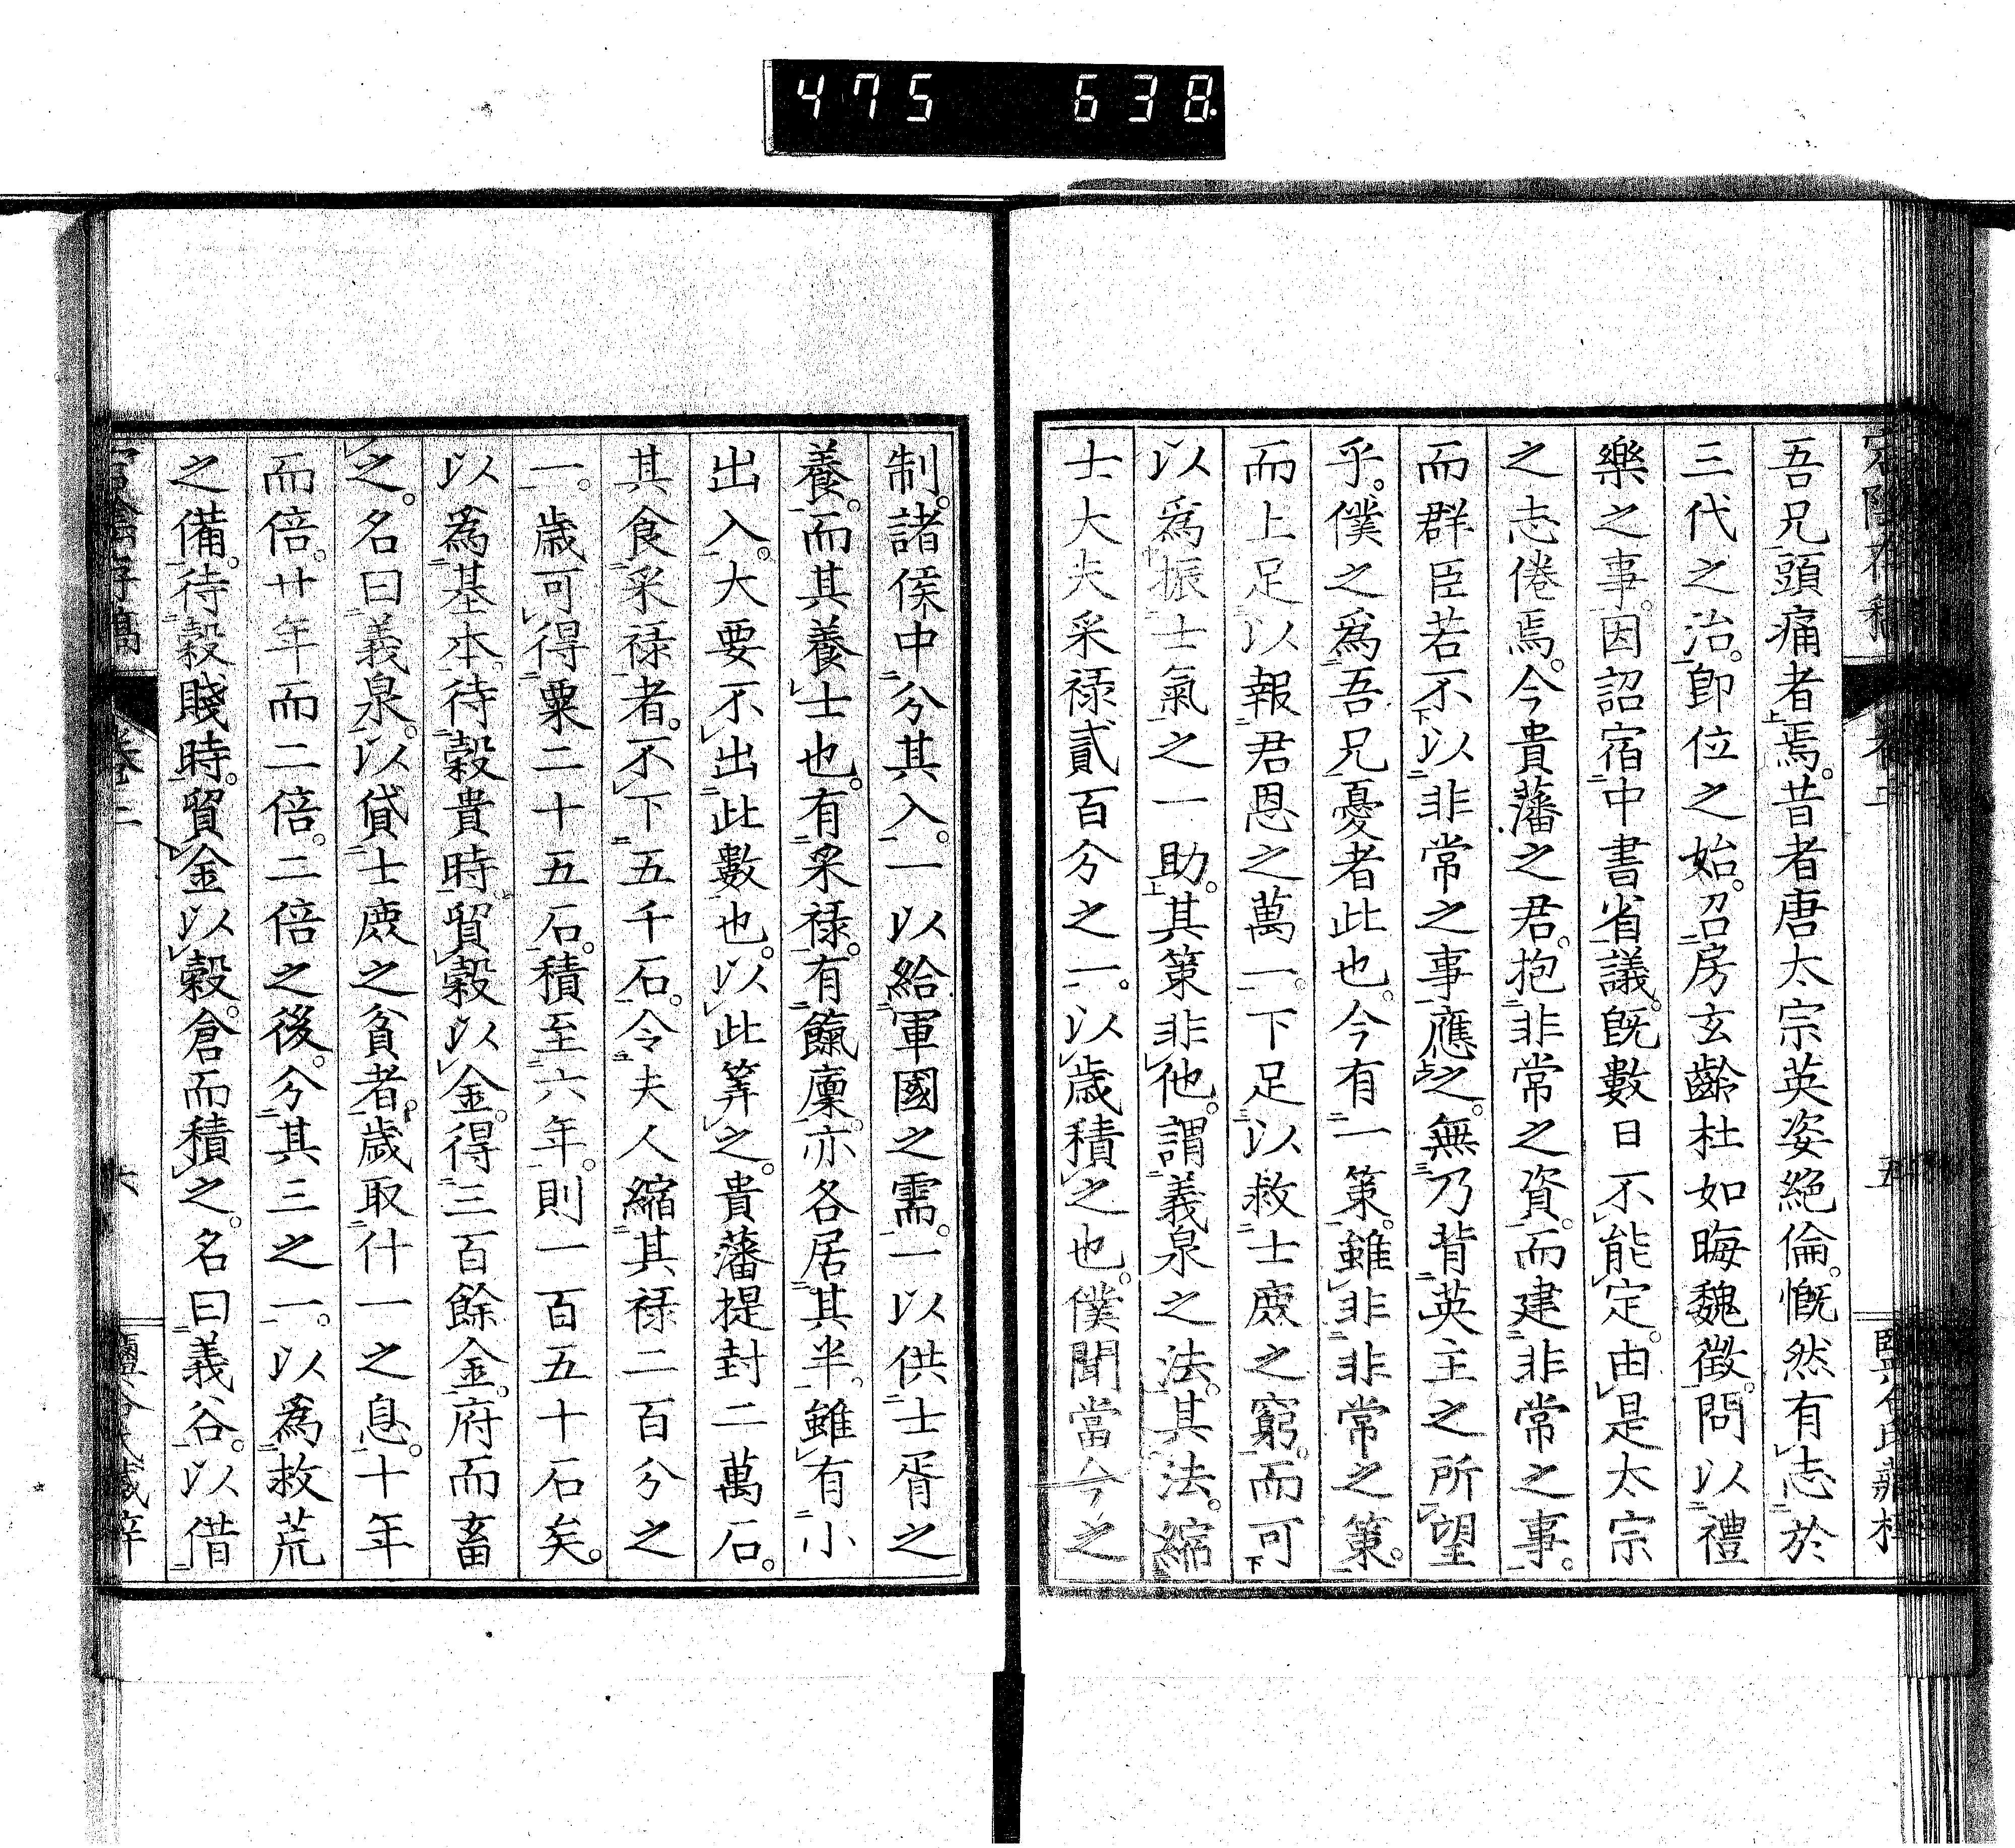 475 638
吾兄頭痛者焉。昔者唐太宗英姿絕倫。慨然有志於
三代之治。卽位之始。召房玄齡杜如晦魏徵。問以禮
樂之事。因詔宿中書省議。旣數日不能定。由是太宗
之志倦焉。今貴藩之君。抱非常之資。而建非常之事。
而群臣若不以非常之事應之。無乃背英主之所望
乎。僕之爲吾兄憂者此也。今有一策。雖非非常之策。
而上足以報君恩之萬一。下足以救士庶之窮。而可
以爲振士氣之一助。其策非他。謂義泉之法。其法。縮
士大夫采祿貳百分之一。以歲積之也。僕聞當今之
制。諸侯中分其入。一以給軍國之需。一以供士胥之
養。而其養士也。有采祿。有餼廩。亦各居其半。雖有小
出入。大要不出此數也。以此筭之。貴藩提封二萬石。
其食采祿者。不下五千石。令夫人縮其祿二百分之
一。歲可得粟二十五石。積至六年。則一百五十石矣。
以爲基本。待穀貴時。貿穀以金。得三百餘金。府而畜
之。名曰義泉。以貸士庶之貧者。歲取什一之息。十年
而倍。廿年而二倍。二倍之後。分其三之一。以爲救荒
之備。待穀賤時。貿金以穀。倉而積之。名曰義谷。以借
卷三
六